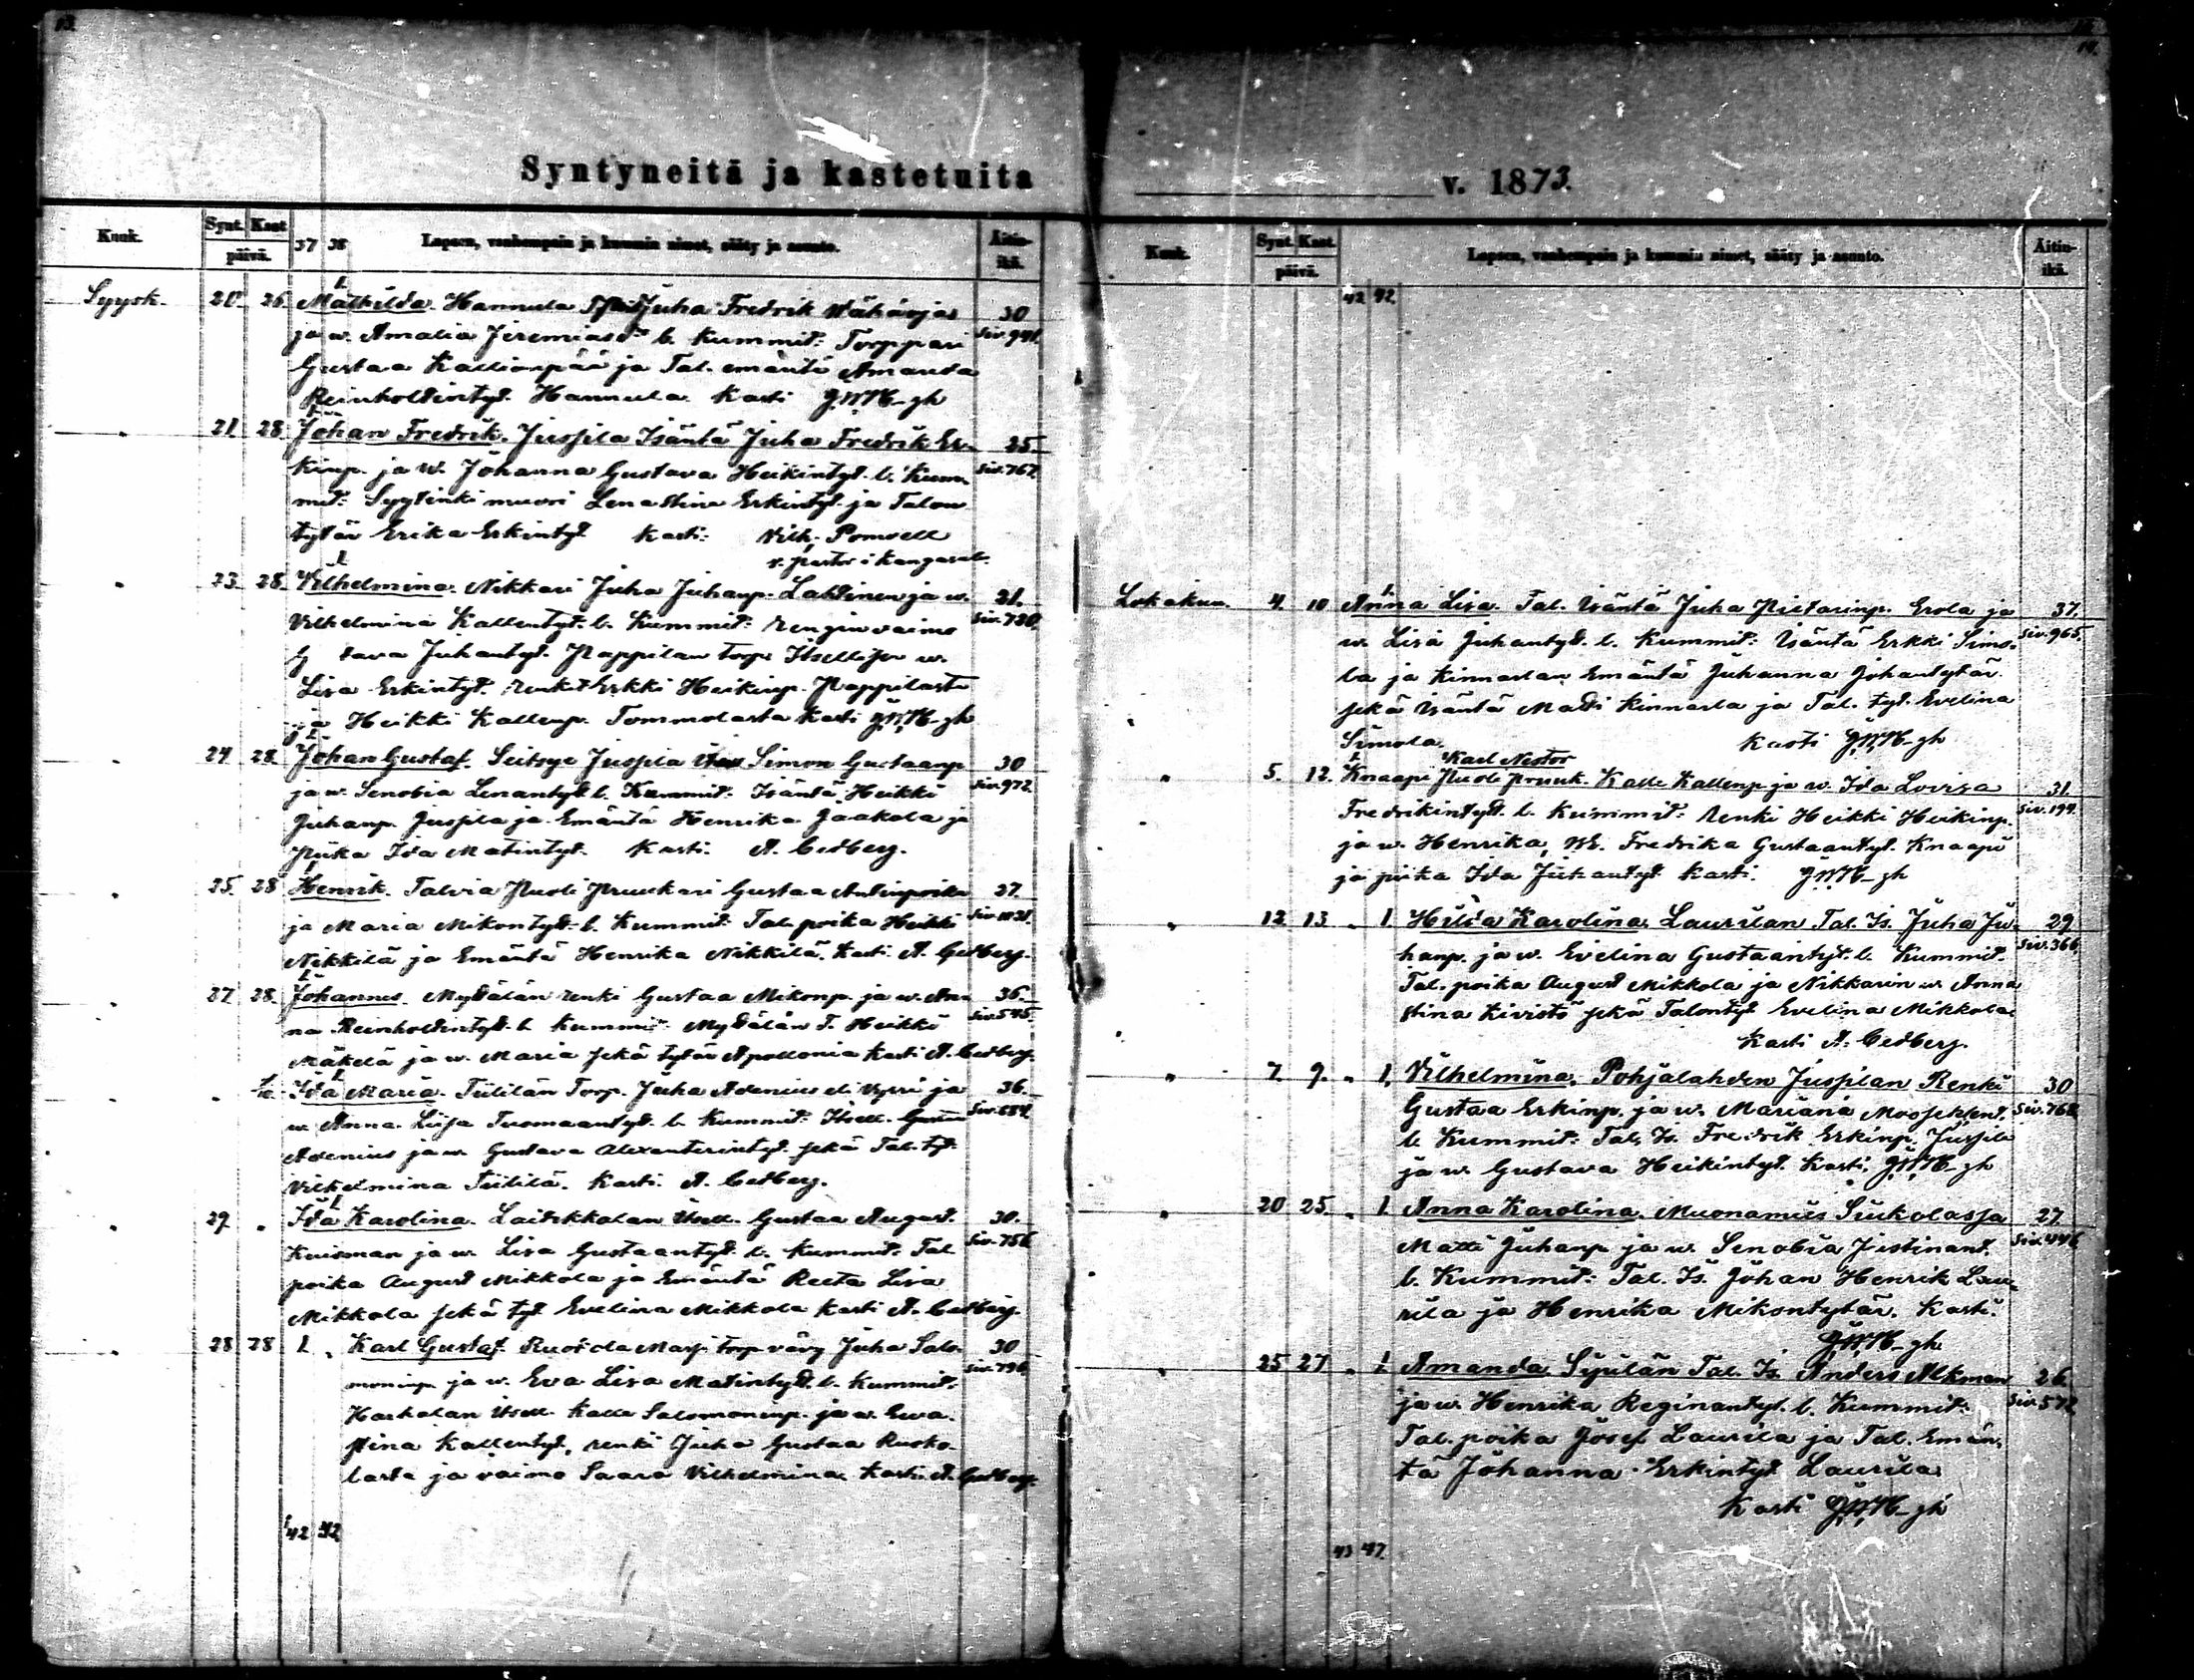 Syntyneitä ja kastetuita
Kuuk. Synt. Kast. päivä. 37 38 Lapsen, vanhempain ja kummin nimet, sääty ja asunto. Äitin-ikä.
Syysk. 20 26 Mathilda. Hannula Juha Fredrik Vähäoja 30
ja w. Amalia Jeremiast. l. Kummit: Torppari Siv. 941.
Gustaa Kalliopää ja Tal. emäntä Amanda
Reinholdintyt. Hannula. Kasti G.W.H-gh
" 21 28 Johan Fredrik. Jussila Isäntä Juha Fredrik Er- 25
kinp. ja w. Johanna Gustava Heikintyt. l. Kum- Siv. 767
mit: Syytinki muori Lenastina Erkintyt. ja Talon
tytär Erika Erkintyt. Kasti: Vilh. Ponsell
v. pastor i Kangasal.
" 23 28 Vilhelmina. Nikkari Juha Juhanp. Lahtinen ja w. 21.
Vilhelmina Kallentyt. l. Kummit: rengin vaimo Siv. 730
tava Juhantyt. Pappilan torp. Itsellisen w.
Lisa Erkintyt. renki Erkki Heikinp. Pappilasta
ja Heikki Kallenp. Tommolasta Kasti G.W.H-gh
24 28 Johan Gustaf. Jussila Simon Gustaanp. 30
ja w. Senobia Lenantyt. l. Kummit: Isäntä Heikki Siv. 972
Juhanp. Jussila ja Emäntä Henrika Jaakola ja
piika Ida Matintyt. Kasti. A. Cedberg.
" 25 28 Henrik. Talvia Puoli Pruukari Gustaa Antinpoika 27.
ja Maria Mikontyt. l. Kummit: Tal. poika Heikki
Nikkilä ja Emäntä Henrika Nikkilä. Kasti A. Cedberg.
" 27 28 Johannes. Myttälän renki Gustaa Mikonp. ja w. An- 36.
na Reinholdintyt. l. Kummit: Myttälän T. Heikki Siv. 545.
Mäkelä ja w. Maria sekä tytär Apollonia Kasti A. Cedberg.
Ida Maria. Tiililän Torp. Juha Adenius ja 36.
w. Anna Liisa Tuomaantyt. l. Kummit: Itsell. Siv. 684.
Adenius ja w. Gustava Alexanterintyt. sekä Tal. tyt.
Vilhelmina Tiililä. Kasti. A. Cedberg.
" 29 " Ida Karolina. Laidikkalan Itsell. Gustaa August. 30.
Kuisman ja w. Lisa Gustaantyt. l. Kummit: Tal. Siv. 756
poika August Mikkola ja Emäntä Reeta Lisa
Mikkola sekä tyt. Evelina Mikkola Kasti A. Cedberg.
" 28 28 1 " Karl Gustaf. torp. vävy Juha Salo- 30
moninp. ja w. Eva Lisa Matintyt. l. Kummit: Siv. 796
Itsell. Kalle Salomoninp. ja w. Eva-
stina Kallentyt. renki Juha Gustaa Rusko-
lasta ja vaimo Saara Vilhelmina. Kasti A. Cedberg.
42 42
v. 1873.
Kuuk. Synt. Kast. päivä. Lapsen, vanhempain ja kummin nimet, sääty ja asunto. Äitin-ikä.
42 42
Lokakuu. 4. 10 Anna Lisa. Tal. Isäntä Juha Pietarinp. Erola ja 37.
w. Lisa Juhantyt. l. Kummit: Isäntä Erkki Simo- Siv. 965.
la ja Kinnarlan Emäntä Juhanna Johantytär
sekä Isäntä Matti Kinnarla ja Tal. tyt. Evelina
Simola. Kasti G.W.H-gh
Karl Nestor
" 5. 12. Knaapi Puoli pruuk. Kalle Kallenp. ja w. Ida Lovisa 31.
Fredrikintyt. l. Kummit: Renki Heikki Heikinp. Siv. 194.
ja w. Henrika, Fredrika Gustaantyt. Knaapi
ja piika Ida Juhantyt. Kasti. G.W.H-gh
" 12 13 " 1. Hilda Karolina. Laurilan Tal. Is. Juha Ju- 29
hanp. ja w. Evelina Gustaantyt. l. Kummit. Siv. 366.
Tal. poika August Mikkola ja Nikkarin w. Anna
stina Kivistö sekä Talontyt. Evelina Mikkola.
Kasti A. Cedberg.
" 7. 9. " 1. Vilhelmina. Pohjalahden Jussilan Renki 30
Gustaa Erkinp. ja w. Mariana Siv. 768
l. Kummit: Tal. Is. Fredrik Erkinp. Jussila
ja w. Gustava Heikintyt. Kasti. G.W.H-gh
" 20 25. " 1. Anna Karolina. Muonamies Siukolassa 27
Matti Juhanp. ja w. Senobia
l. Kummit: Tal. Is. Johan Henrik Lau-
rila ja Henrika Mikontytär. Kasti.
G.W.H-gh
" 25 27 " 1. Amanda. Tal. Is. Anders Alkman 26.
ja w. Henrika Reginantyt. l. Kummit: Siv. 572
Tal. poika Josef Laurila ja Tal. Emän-
tä Johanna Erkintyt. Laurila
Kasti G.W.H-gh
43 47